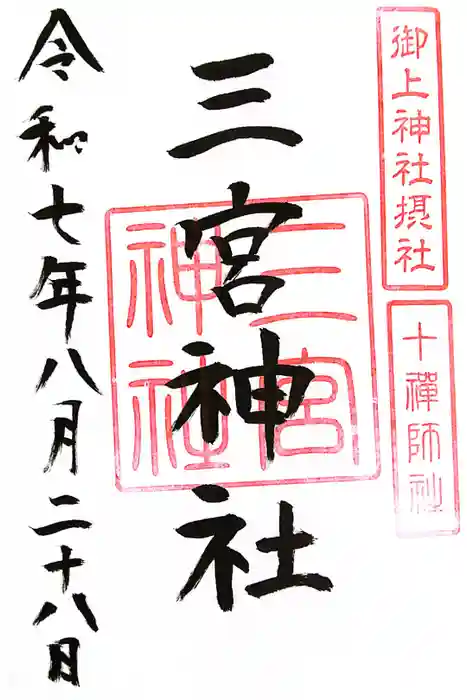 御上神社摂社
十禅師社
三宮神社
三宮
神社
令和七年八月二十八日